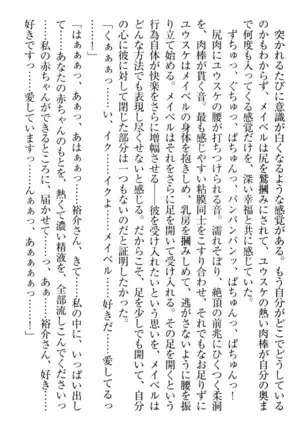 突かれるたびに意識が白くなるような感覚がある。もう自分がどこでどうしている
のかもわからず、メイベルは尻を鷲掴みにされて、ユウスケの熱い肉棒が自分の奥ま
で何度も入ってくる感覚だけを、深い幸福と共に感じていた。
ずちゅっ、ぐちゅっ、ぱちゅんっ、パンパンパンッ、ぱちゅんっ、ぱちゅんっ!
尻肉にユウスケの腰が打ちつけられる音。濡れそぼり、絶頂の前兆にひくつく柔洞
を、肉棒が貫く音。最も感じやすい粘膜同士をこすり合わせ、それでもなお足りずに
ユウスケは、メイベルの身体を抱きしめ、乳房を掴みしめて、逃がさないように腰を振
り立て始める。メイベルはそれに応えて、さらに足を開いて——その足を開くという
行為自体が快楽をさらに増幅させる——彼を受け入れたいという思いを、メイベルは
どんな方法でも表現し尽くせないと感じる。だからこそ、足を少しでも開いて、自分
の心に彼に対して閉じた部分は一つもないのだと証明したかった。
「くぁぁぁっ……い、イク……イクよ、メイベル……好きだ……愛してるっ
……!」
「はぁぁぁっ、あぁぁぁっ……裕介……きてっ……私の中に、いっぱい出し
て……あなたの赤ちゃんのもとを、熱くて濃い精液を、全部流しこんでくださいっ
……私の赤ちゃんができるところに、届かせて……っ、あぁ……裕介さん、好き……
好きですっ……愛していますっ……んぁぁっ、あぁぁぁぁっ……!」